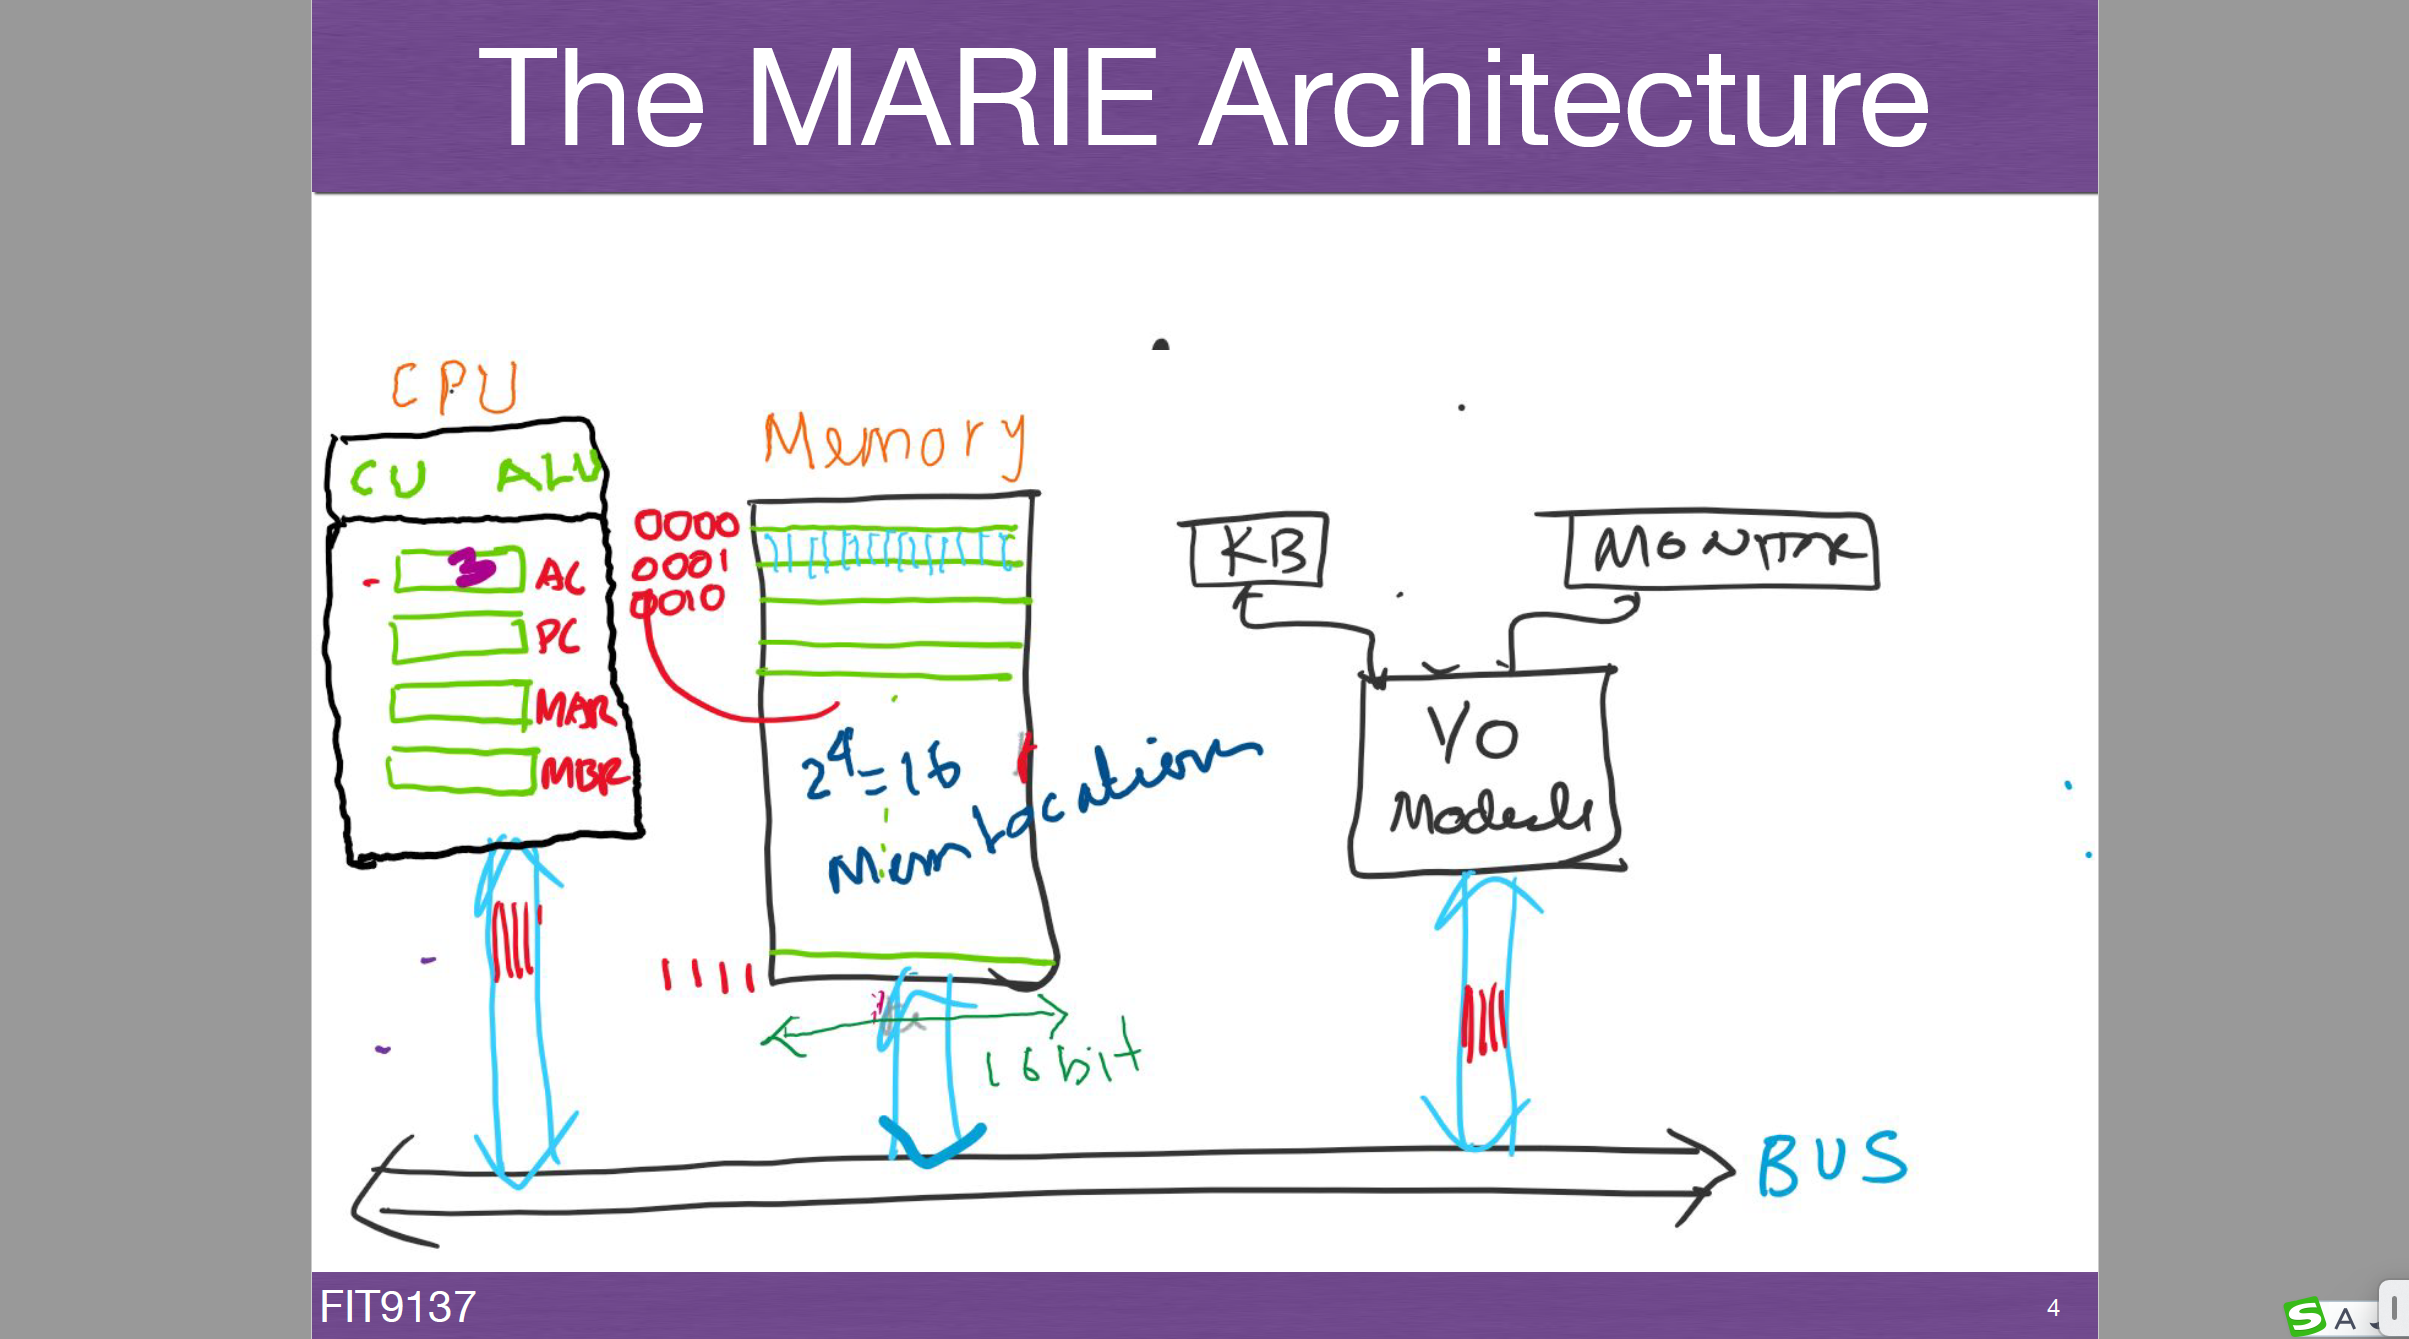 The MARIE Architecture
CPU
CU ALU
3 AC
PC
MAR
MBR
Memory
0000
0001
0010
2^4=16
Mem Location
1111
16 bit
KB
MONITOR
I/O
Module
BUS
FIT9137
4
S A